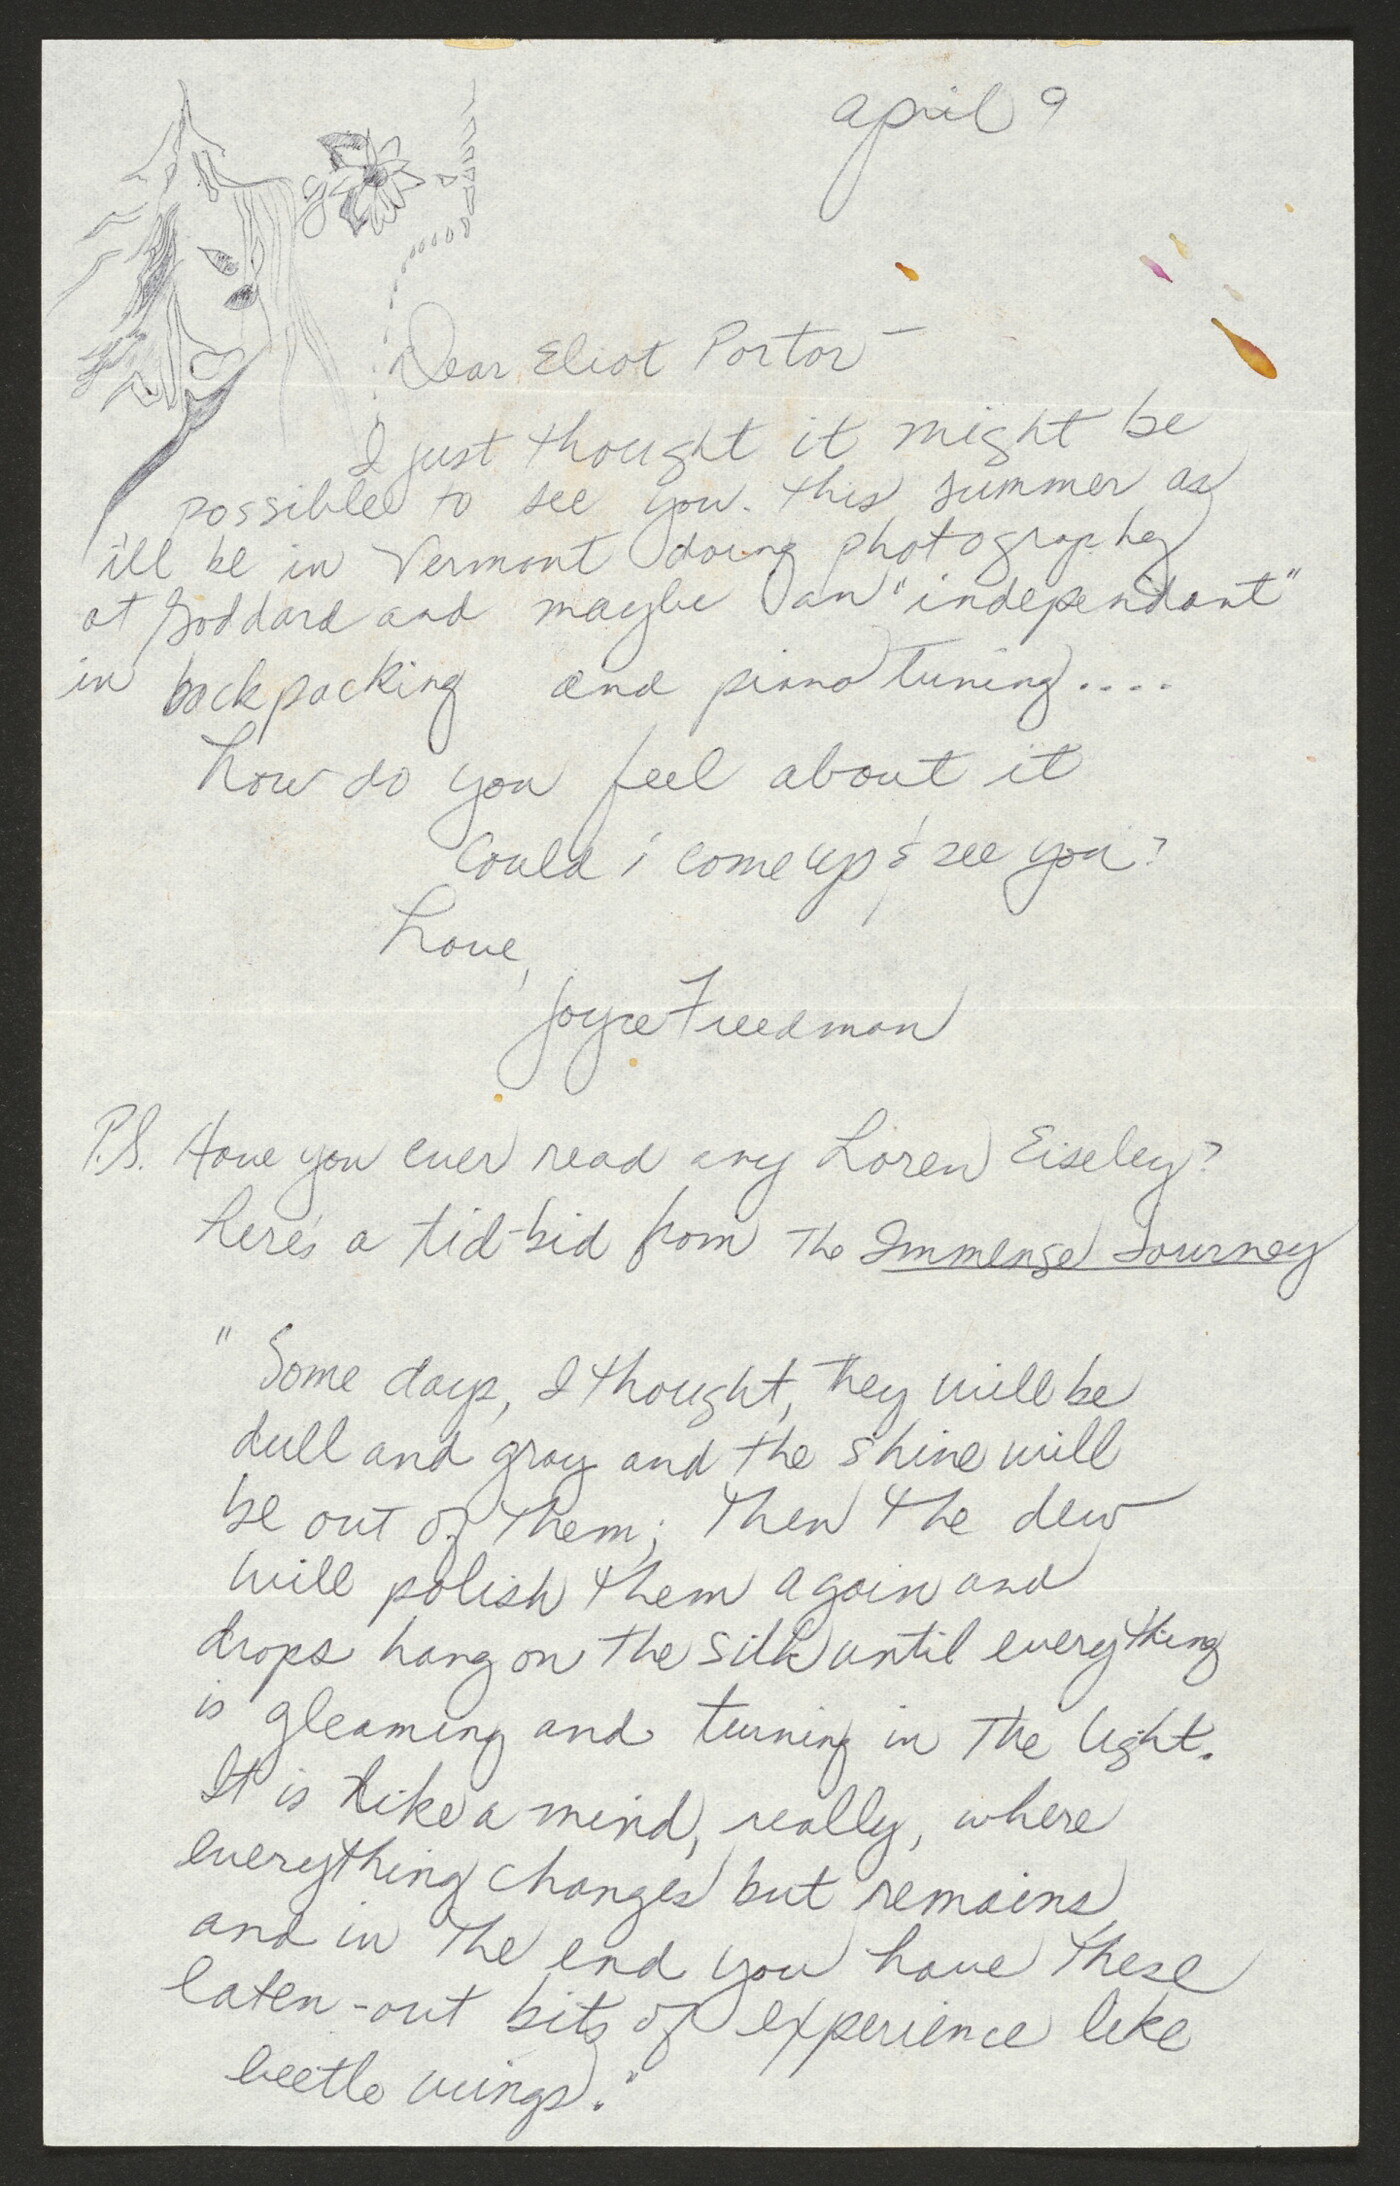 april 9
Dear Eliot Portor —
I just thought it might be
possible to see you. this summer as
i'll be in Vermont doing photography
at Goddard and maybe an "independant"
in backpacking and piano tuning....
how do you feel about it
Could i come up & see you?
Love,
Joyce Freedman
P.S. Have you ever read any Loren Eiseley?
here's a tid-bid from The Immense Journey
" Some days, I thought, they will be
dull and gray and the shine will
be out of them; then the dew
will polish them again and
drops hang on the silk until everything
is gleaming and turning in the light.
It is like a mind, really, where
everything changes but remains,
and in the end you have these
eaten-out bits of experience like
beetle wings."